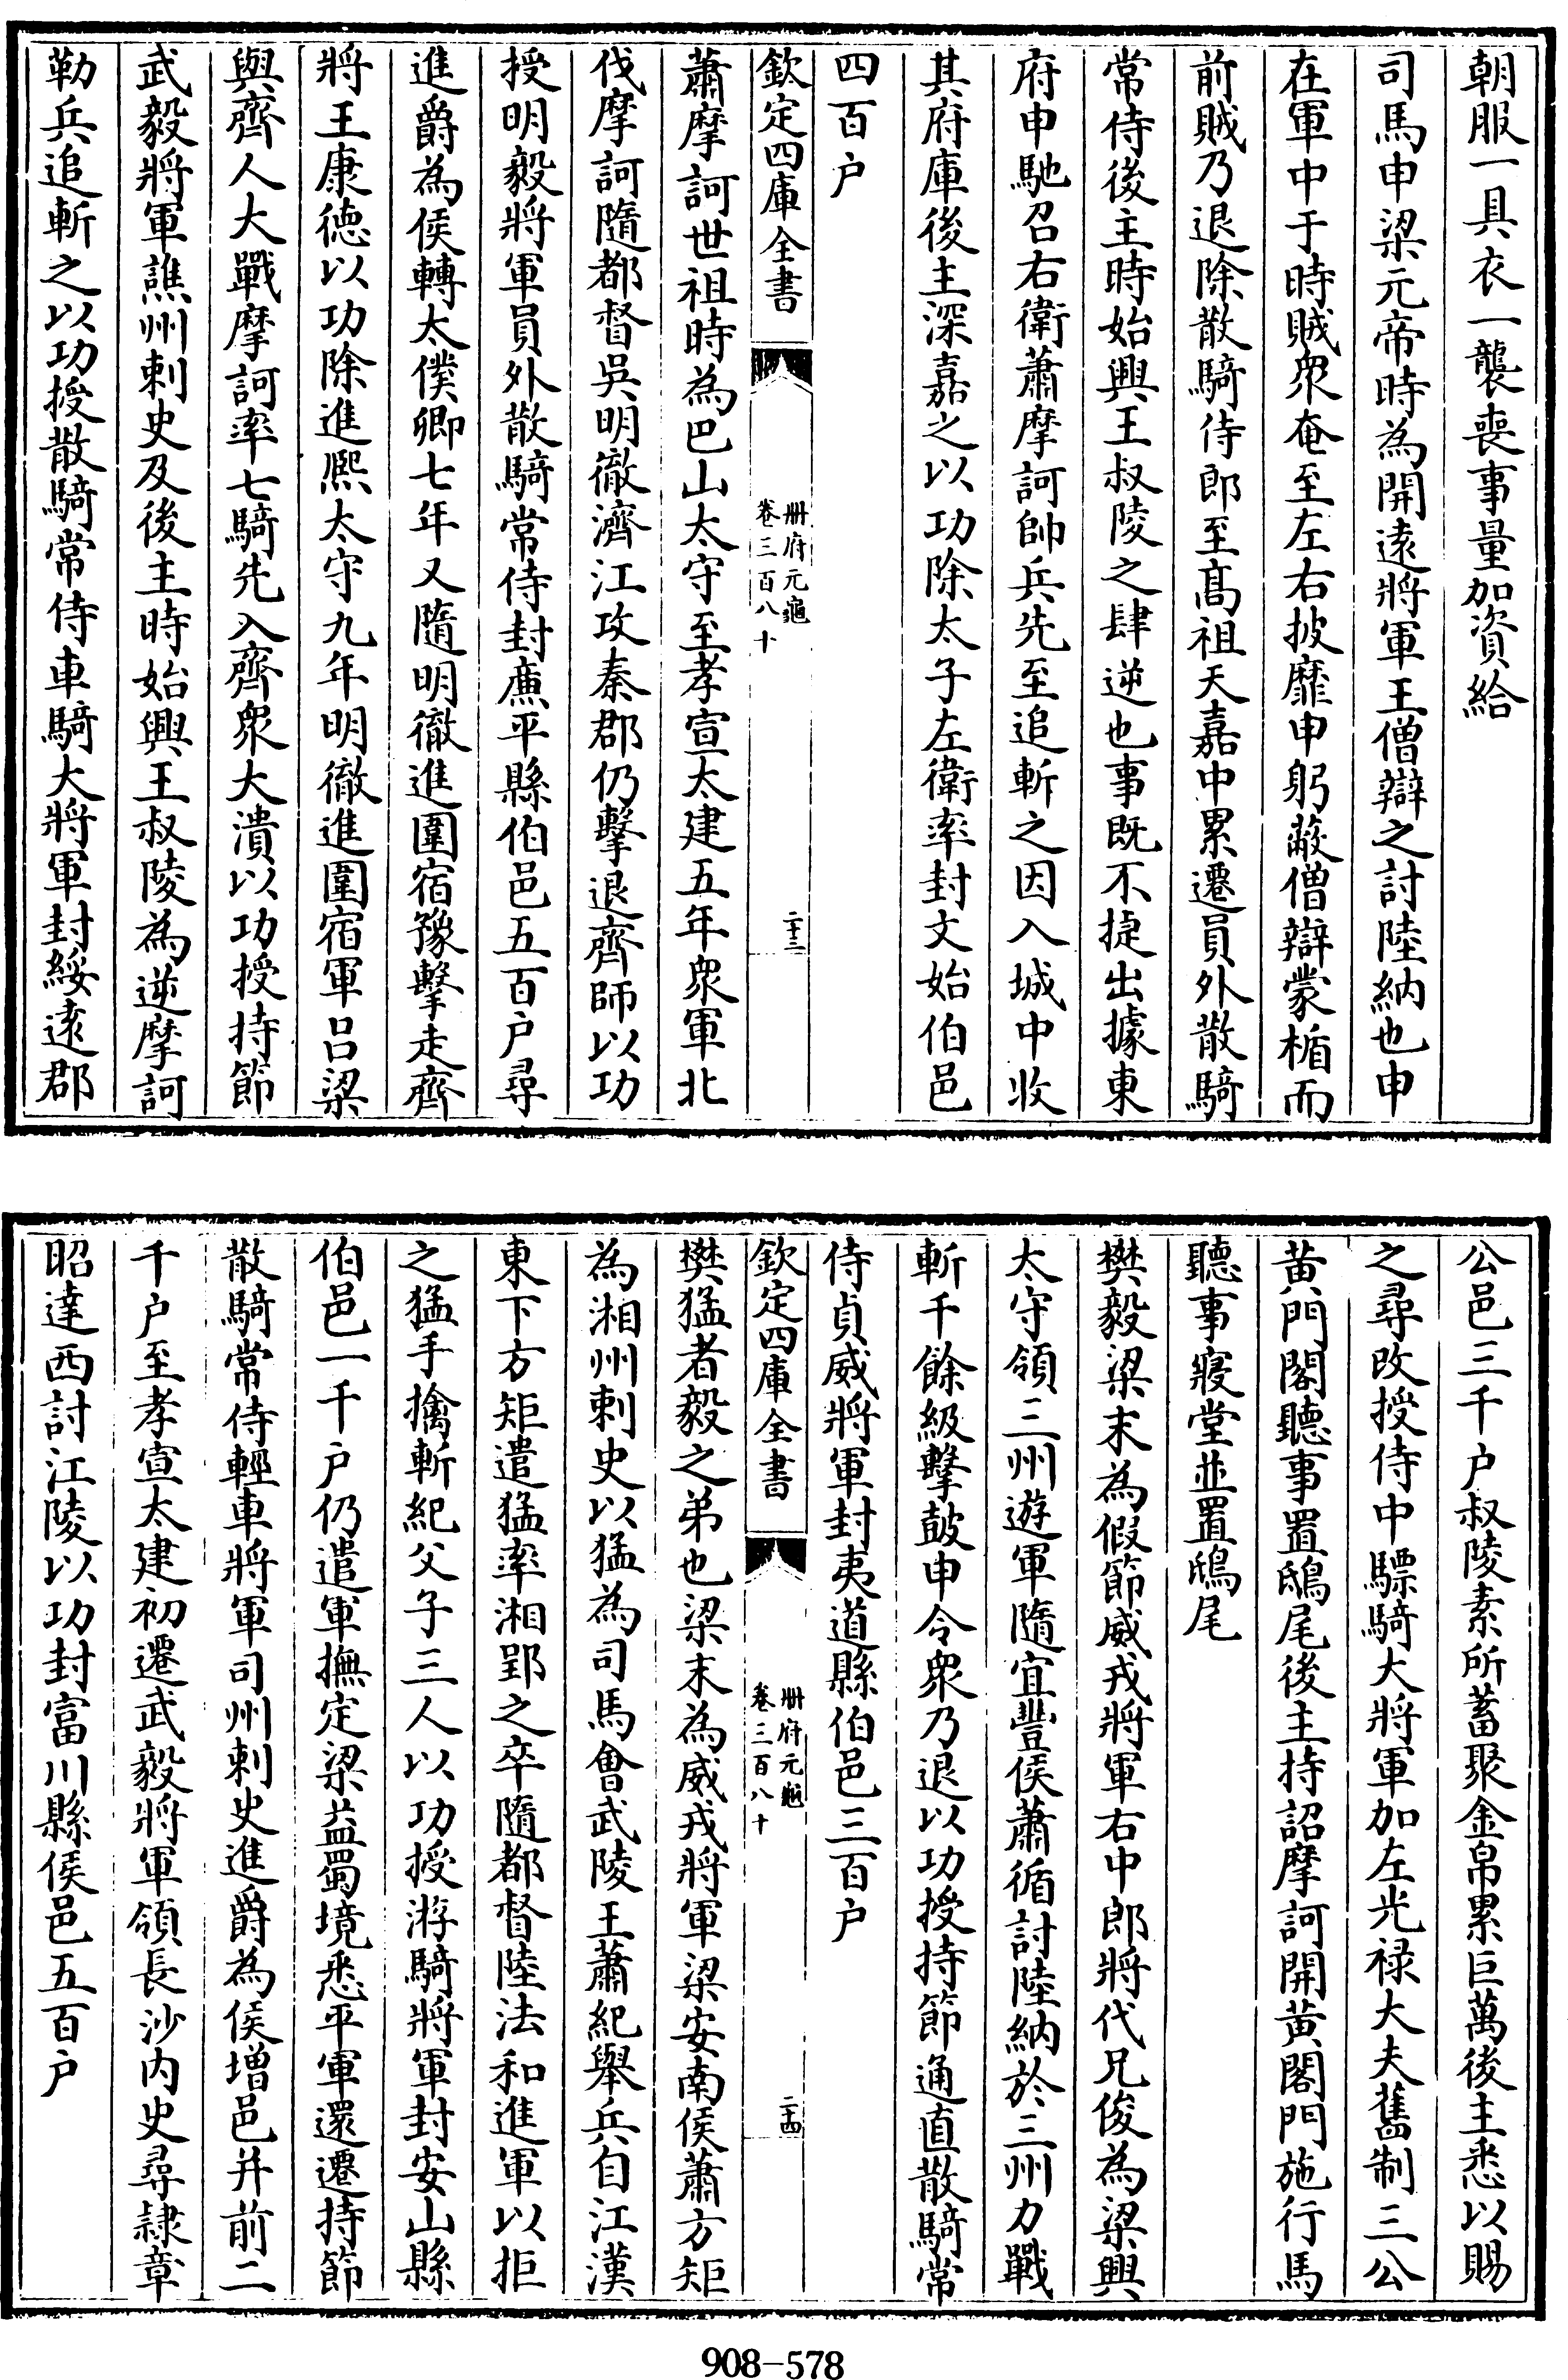 朝服一具衣一襲喪事量加資給
司馬申梁元帝時為開逺將軍王僧辯之討陸納也申
在軍中于時賊衆奄至左右披靡申躬蔽僧辯蒙楯而
前賊乃退除散騎侍郎至髙祖天嘉中累遷員外散騎
常侍後主時始興王叔陵之肆逆也事既不捷出據東
府申馳召右衛蕭摩訶帥兵先至追斬之因入城中收
其府庫後主深嘉之以功除太子左衛率封文始伯邑
四百户
欽定四庫全書
冊府元龜
卷三百八十
二十三
蕭摩訶世祖時為巴山太守至孝宣太建五年衆軍北
伐摩訶隨都督吳明徹濟江攻秦郡仍擊退齊師以功
授明毅將軍員外散騎常侍封亷平縣伯邑五百户尋
進爵為侯轉太僕卿七年又隨明徹進圍宿豫擊走齊
將王康德以功除進熙太守九年明徹進圍宿軍吕梁
與齊人大戰摩訶率七騎先入齊衆大潰以功授持節
武毅將軍譙州刺史及後主時始興王叔陵為逆摩訶
勒兵追斬之以功授散騎常侍車騎大將軍封綏逺郡
公邑三千户叔陵素所蓄聚金帛累巨萬後主悉以賜
之尋改授侍中驃騎大將軍加左光禄大夫舊制三公
黄門閣聽事置鴟尾後主持詔摩訶開黄閣門施行馬
聽事寢堂並置鴟尾
樊毅梁末為假節威戎將軍右中郎將代兄俊為梁興
太守領三州遊軍隨宜豐侯蕭循討陸納於三州力戰
斬千餘級擊鼓申令衆乃退以功授持節通直散騎常
侍貞威將軍封夷道縣伯邑三百户
欽定四庫全書
冊府元龜
卷三百八十
二十四
樊猛者毅之弟也梁末為威戎將軍梁安南侯蕭方矩
為湘州刺史以猛為司馬㑹武陵王蕭紀舉兵自江漢
東下方矩遣猛率湘郢之卒隨都督陸法和進軍以拒
之猛手擒斬紀父子三人以功授游騎將軍封安山縣
伯邑一千户仍遣軍撫定梁益蜀境悉平軍還遷持節
散騎常侍輕車將軍司州刺史進爵為侯增邑并前二
千户至孝宣太建初遷武毅將軍領長沙内史尋隷章
昭達西討江陵以功封富川縣侯邑五百户
908-578